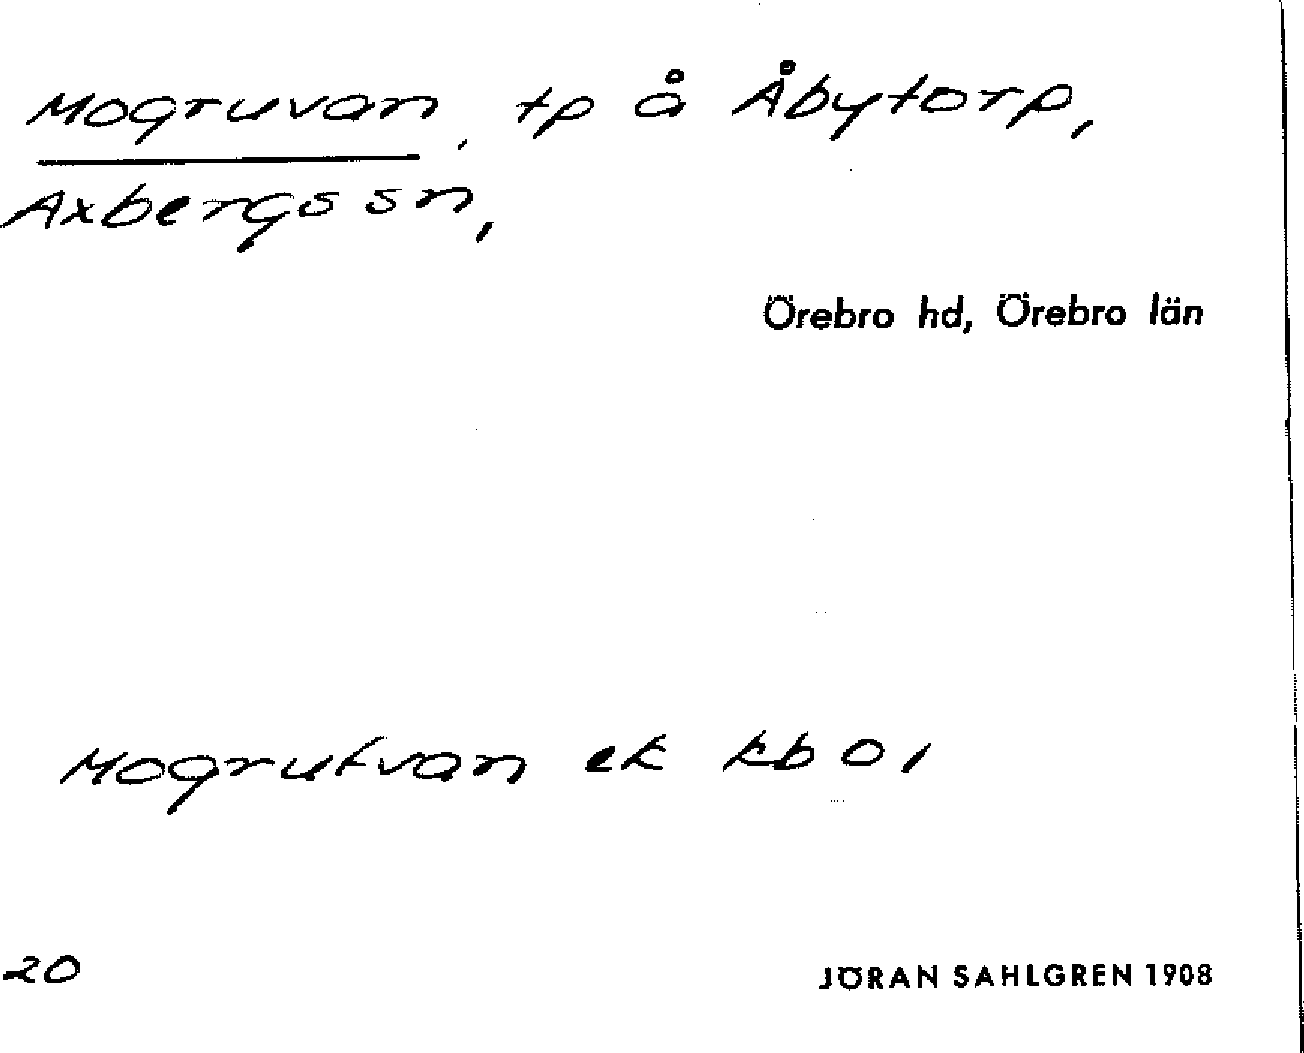 Mogruvan, tp å Åbytorp,
Axbergs sn,
Örebro hd, Örebro län
Mogrufvan ek kb 01
20
JÖRAN SAHLGREN 1908